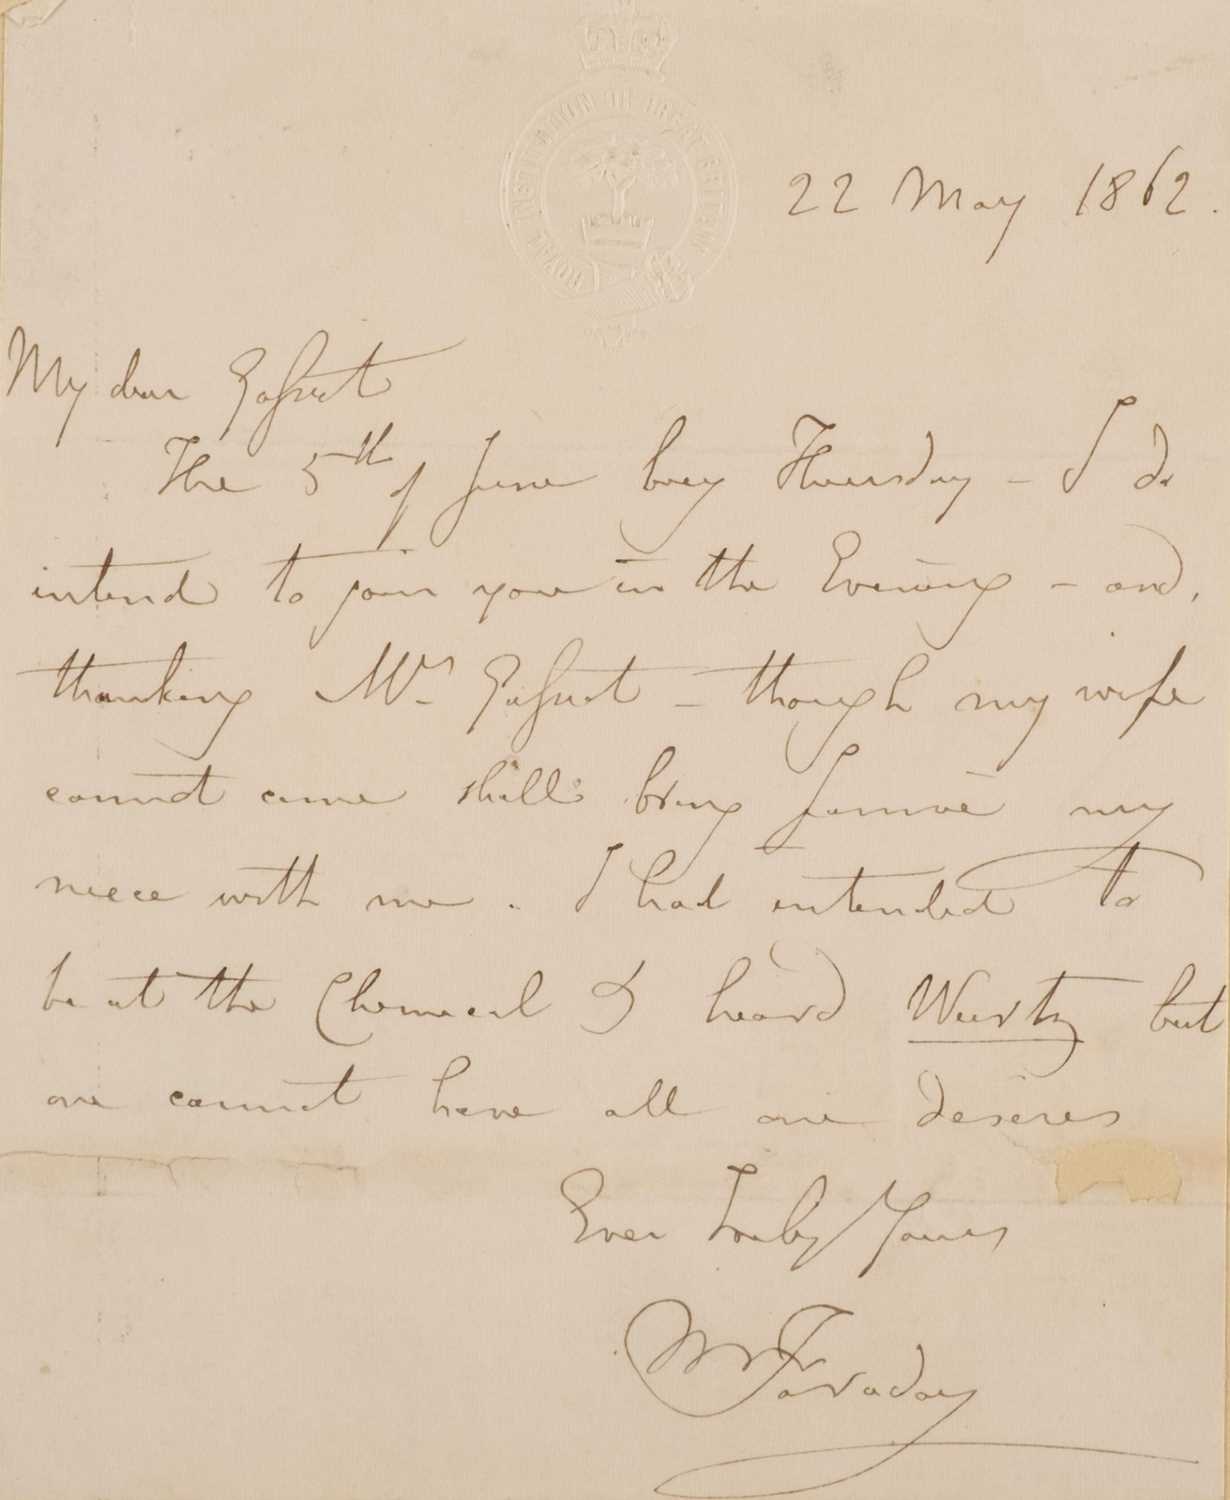 ROYAL INSTITUTION OF GREAT BRITAIN
22 May 1862.
My dear Gassiot
The 5th of June being Thursday - I do
intend to join you in the Evening - and,
thanking Mrs. Gassiot - though my wife
cannot come shall bring Jannie my
niece with me. I had intended to
be at the Chemical & heard Wurtz but
one cannot have all one desires
Ever Truly Yours
M Faraday